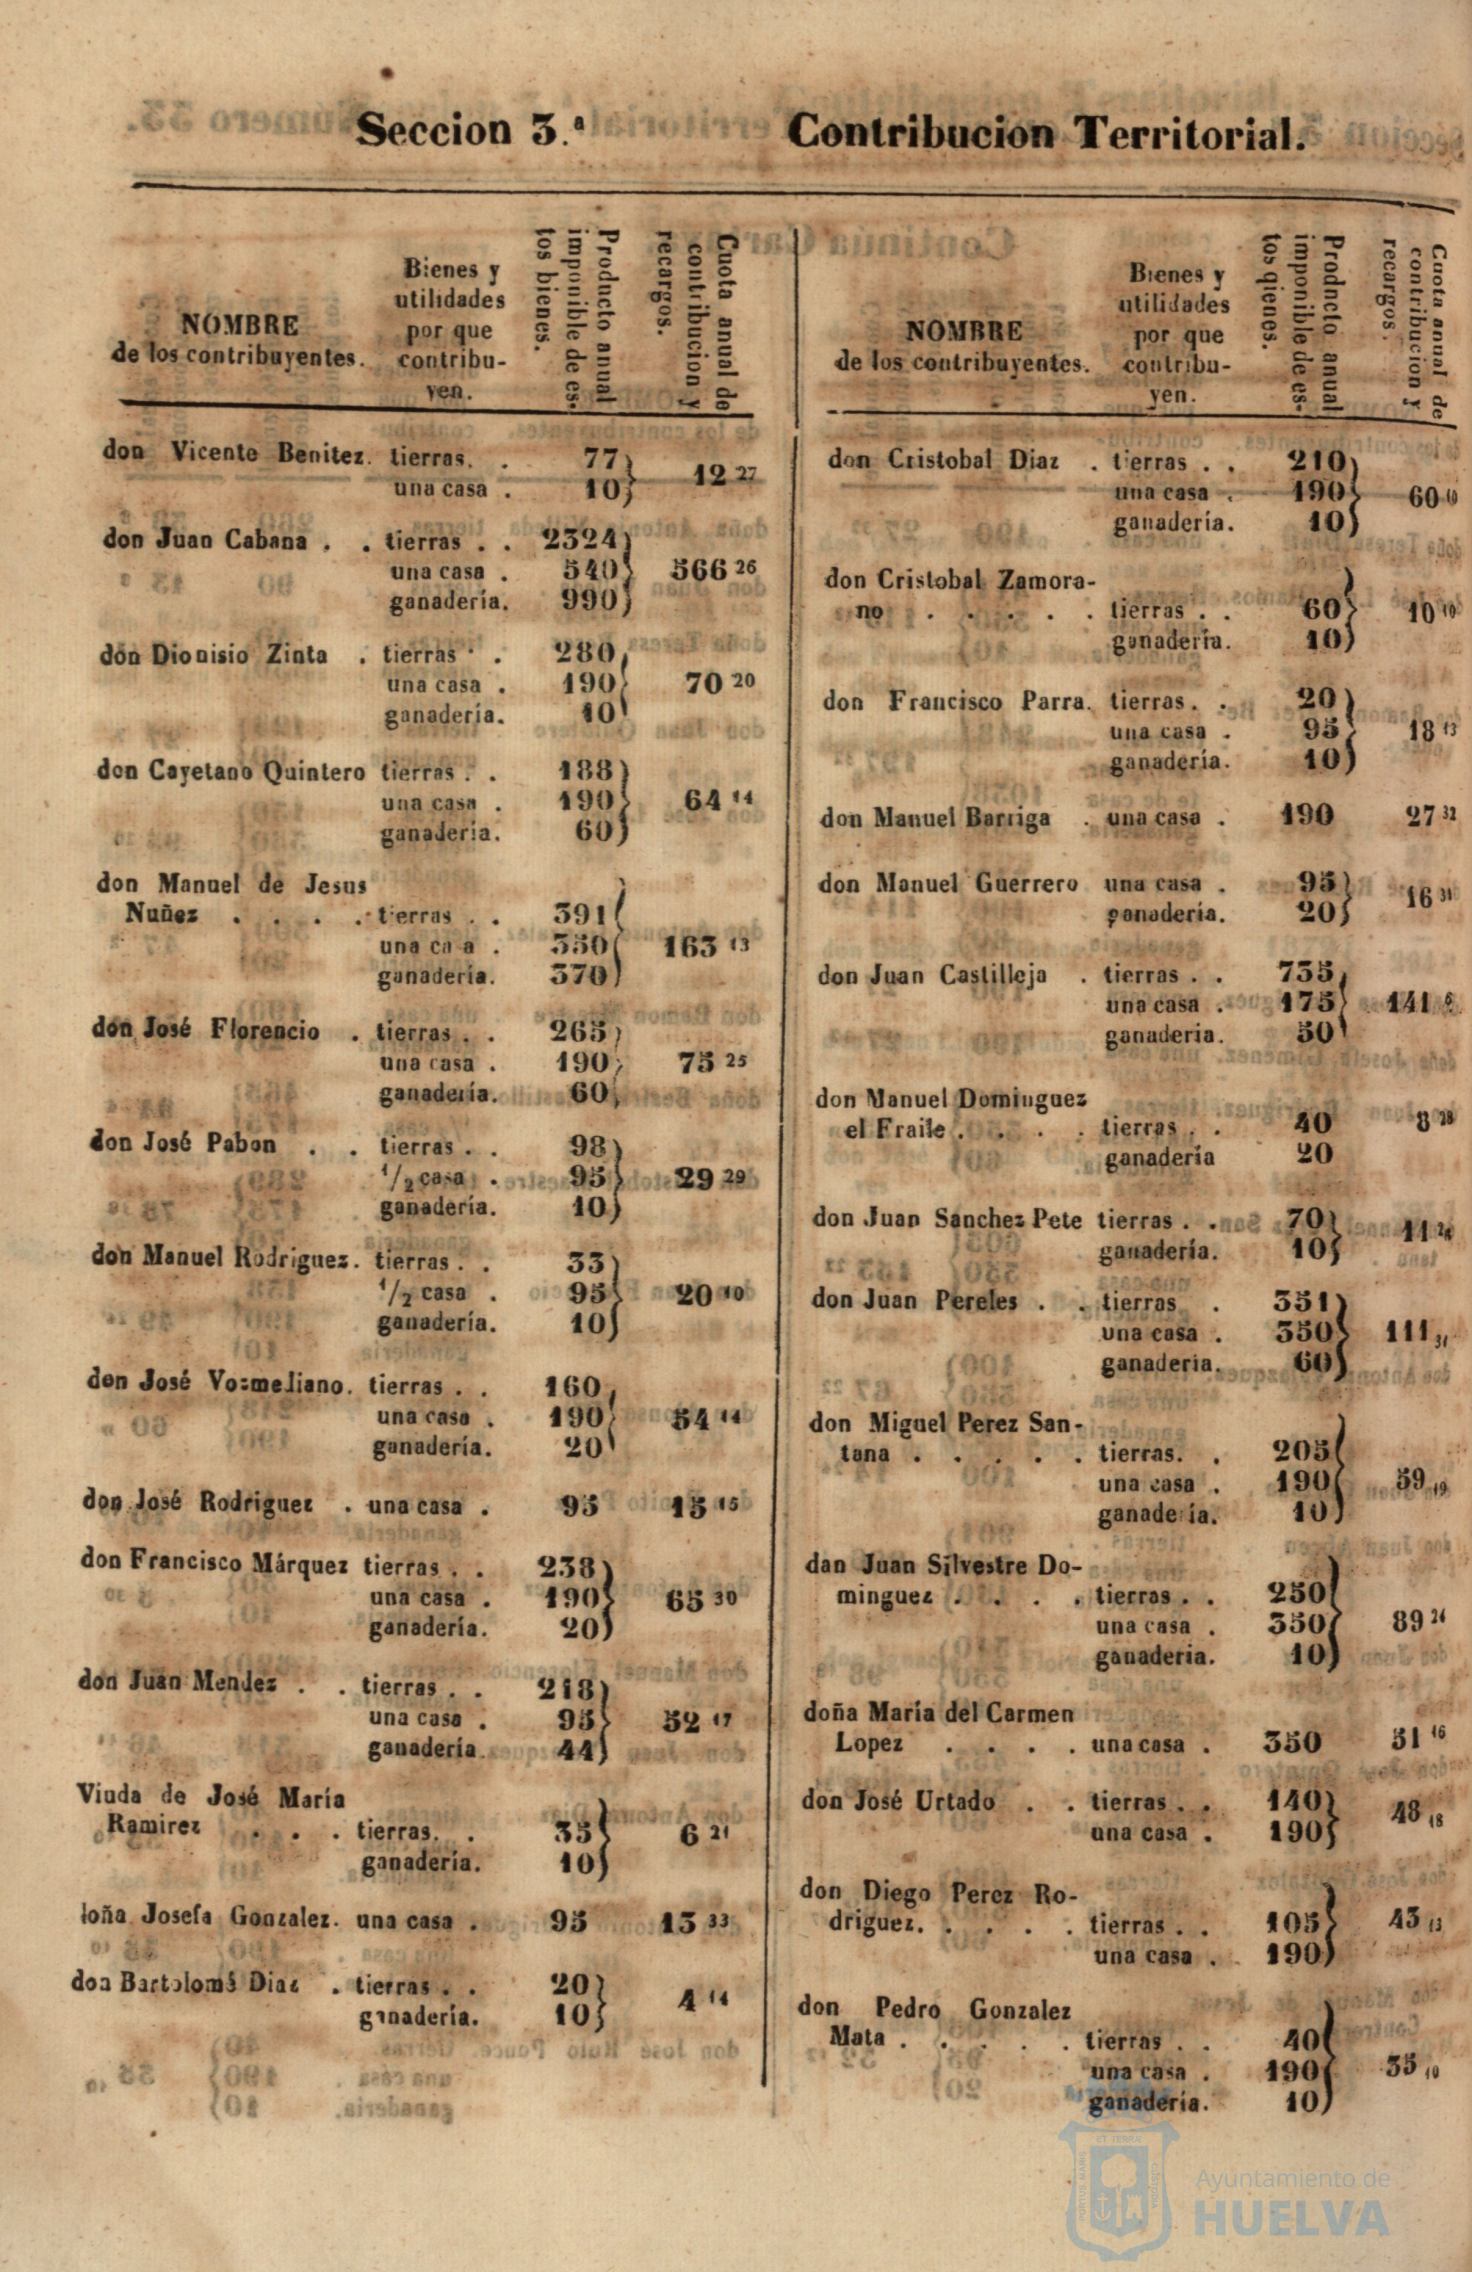 Seccion 3.ª Contribucion Territorial.
NOMBRE
de los contribuyentes.
Bienes y
utilidades
por que
contribu-
yen.
Producto anual
imponible de es-
tos bienes.
Cuota anual de
contribucion y
recargos.
don Vicente Benitez. tierras. . 77
una casa . 10 12 27
don Juan Cabana . . tierras . . 2324
una casa . 540 566 26
ganadería. 990
don Dionisio Zinta . tierras . 280
una casa . 190 70 20
ganadería. 10
don Cayetano Quintero tierras . . 188
una casa . 190 64 14
ganadería. 60
don Manuel de Jesus
Nuñez . . . . tierras . . 391
una ca a . 350 163 13
ganadería. 370
don José Florencio . tierras . . 265
una casa . 190 75 25
ganadería. 60
don José Pabon . . tierras . . 98
1/2 casa . 95 29 29
ganadería. 10
don Manuel Rodriguez. tierras . . 33
1/2 casa . 95 20 10
ganadería. 10
don José Vozmeliano. tierras . . 160
una casa . 190 54 14
ganadería. 20
don José Rodriguez . una casa . 95 13 15
don Francisco Márquez tierras . . 238
una casa . 190 65 30
ganadería. 20
don Juan Mendez . . tierras . . 218
una casa . 95 52 17
ganadería. 44
Viuda de José María
Ramirez . . . tierras. . 35
ganadería. 10 6 21
doña Josefa Gonzalez. una casa . 95 13 33
don Bartolomé Diaz . tierras . . 20
ganadería. 10 4 14
NOMBRE
de los contribuyentes.
Bienes y
utilidades
por que
contribu-
yen.
Producto anual
imponible de es-
tos qienes.
Cuota anual de
contribucion y
recargos.
don Cristobal Diaz . tierras . . 210
una casa . 190 60 10
ganadería. 10
don Cristobal Zamora-
no . . . . . tierras . . 60 10 10
ganadería. 10
don Francisco Parra. tierras. . 20
una casa . 95 18 13
ganadería. 10
don Manuel Barriga . una casa . 190 27 32
don Manuel Guerrero una casa . 95
ganadería. 20 16 31
don Juan Castilleja . tierras . . 735
una casa . 175 141
ganaderia. 50
don Manuel Dominguez
el Fraile . . . . tierras . . 40 8 28
ganadería 20
don Juan Sanchez Pete tierras . . 70
ganadería. 10 11
don Juan Pereles . . tierras . 351
una casa . 350 111 31
ganaderia. 60
don Miguel Perez San-
tana . . . . . tierras. . 205
una casa . 190 59 19
ganadería. 10
dan Juan Silvestre Do-
minguez . . . . tierras . . 250
una casa . 350 89 24
ganaderia. 10
doña María del Carmen
Lopez . . . . una casa . 350 51 16
don José Urtado . . tierras . . 140
una casa . 190 48 18
don Diego Perez Ro-
driguez. . . . . tierras . . 105 43 13
una casa . 190
don Pedro Gonzalez
Mata . . . . . tierras . . 40
una casa . 190 35 10
ganadería. 10
Ayuntamiento de
HUELVA